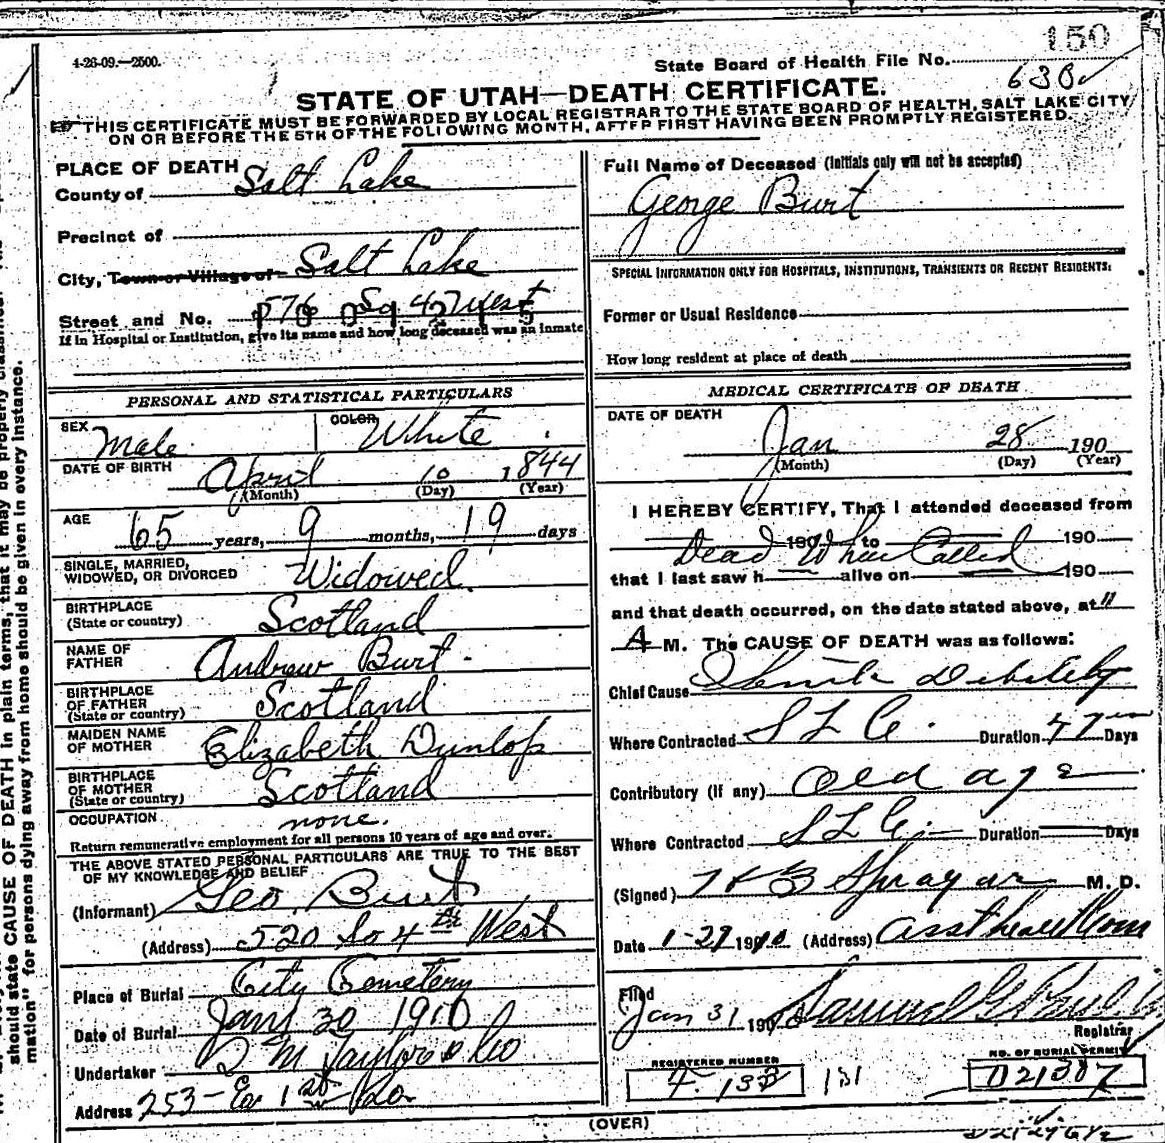 150
4-28-09.—2500.
State Board of Health File No.
STATE OF UTAH—DEATH CERTIFICATE.
THIS CERTIFICATE MUST BE FORWARDED BY LOCAL REGISTRAR TO THE STATE BOARD OF HEALTH, SALT LAKE CITY
ON OR BEFORE THE 5TH OF THE FOLLOWING MONTH, AFTER FIRST HAVING BEEN PROMPTLY REGISTERED.
PLACE OF DEATH
County of Salt Lake
Precinct of
City, Town or Village of Salt Lake
Street and No. 576 So 4 West
If in Hospital or Institution, give its name and how long deceased was an inmate
Full Name of Deceased (Initials only will not be accepted)
George Burt
SPECIAL INFORMATION ONLY FOR HOSPITALS, INSTITUTIONS, TRANSIENTS OR RECENT RESIDENTS:
Former or Usual Residence
How long resident at place of death
PERSONAL AND STATISTICAL PARTICULARS
SEX Male COLOR White
DATE OF BIRTH April 10 1844
(Month) (Day) (Year)
AGE 65 years, 9 months, 19 days
SINGLE, MARRIED,
WIDOWED, OR DIVORCED Widowed
BIRTHPLACE
(State or country) Scotland
NAME OF
FATHER Andrew Burt
BIRTHPLACE
OF FATHER
(State or country) Scotland
MAIDEN NAME
OF MOTHER Elizabeth Dunlop
BIRTHPLACE
OF MOTHER
(State or country) Scotland
OCCUPATION none.
Return remunerative employment for all persons 10 years of age and over.
THE ABOVE STATED PERSONAL PARTICULARS ARE TRUE TO THE BEST
OF MY KNOWLEDGE AND BELIEF
(Informant) Geo. Burt
(Address) 520 So 4th West
Place of Burial City Cemetery
Date of Burial Jany 30 1910
Undertaker M Taylor & Co
Address 253- Ea 1st So.
MEDICAL CERTIFICATE OF DEATH
DATE OF DEATH
Jan 28 190
(Month) (Day) (Year)
I HEREBY CERTIFY, That I attended deceased from
190 to 190
Dead When Called
that I last saw h alive on 190
and that death occurred, on the date stated above, at 11
A M. The CAUSE OF DEATH was as follows:
Chief Cause Senile Debility
Where Contracted S L C. Duration Days
Contributory (if any) Old age
Where Contracted S L C. Duration Days
(Signed) Sprague M. D.
Date 1-29 1910 (Address) asst health Com
Filed
Jan 31 190 Samuel G
Registrar
REGISTERED NUMBER
131
NO. OF BURIAL PERMIT
D21387
(OVER)
should state CAUSE OF DEATH in plain terms, that it may be properly classified.
mation" for persons dying away from home should be given in every instance.